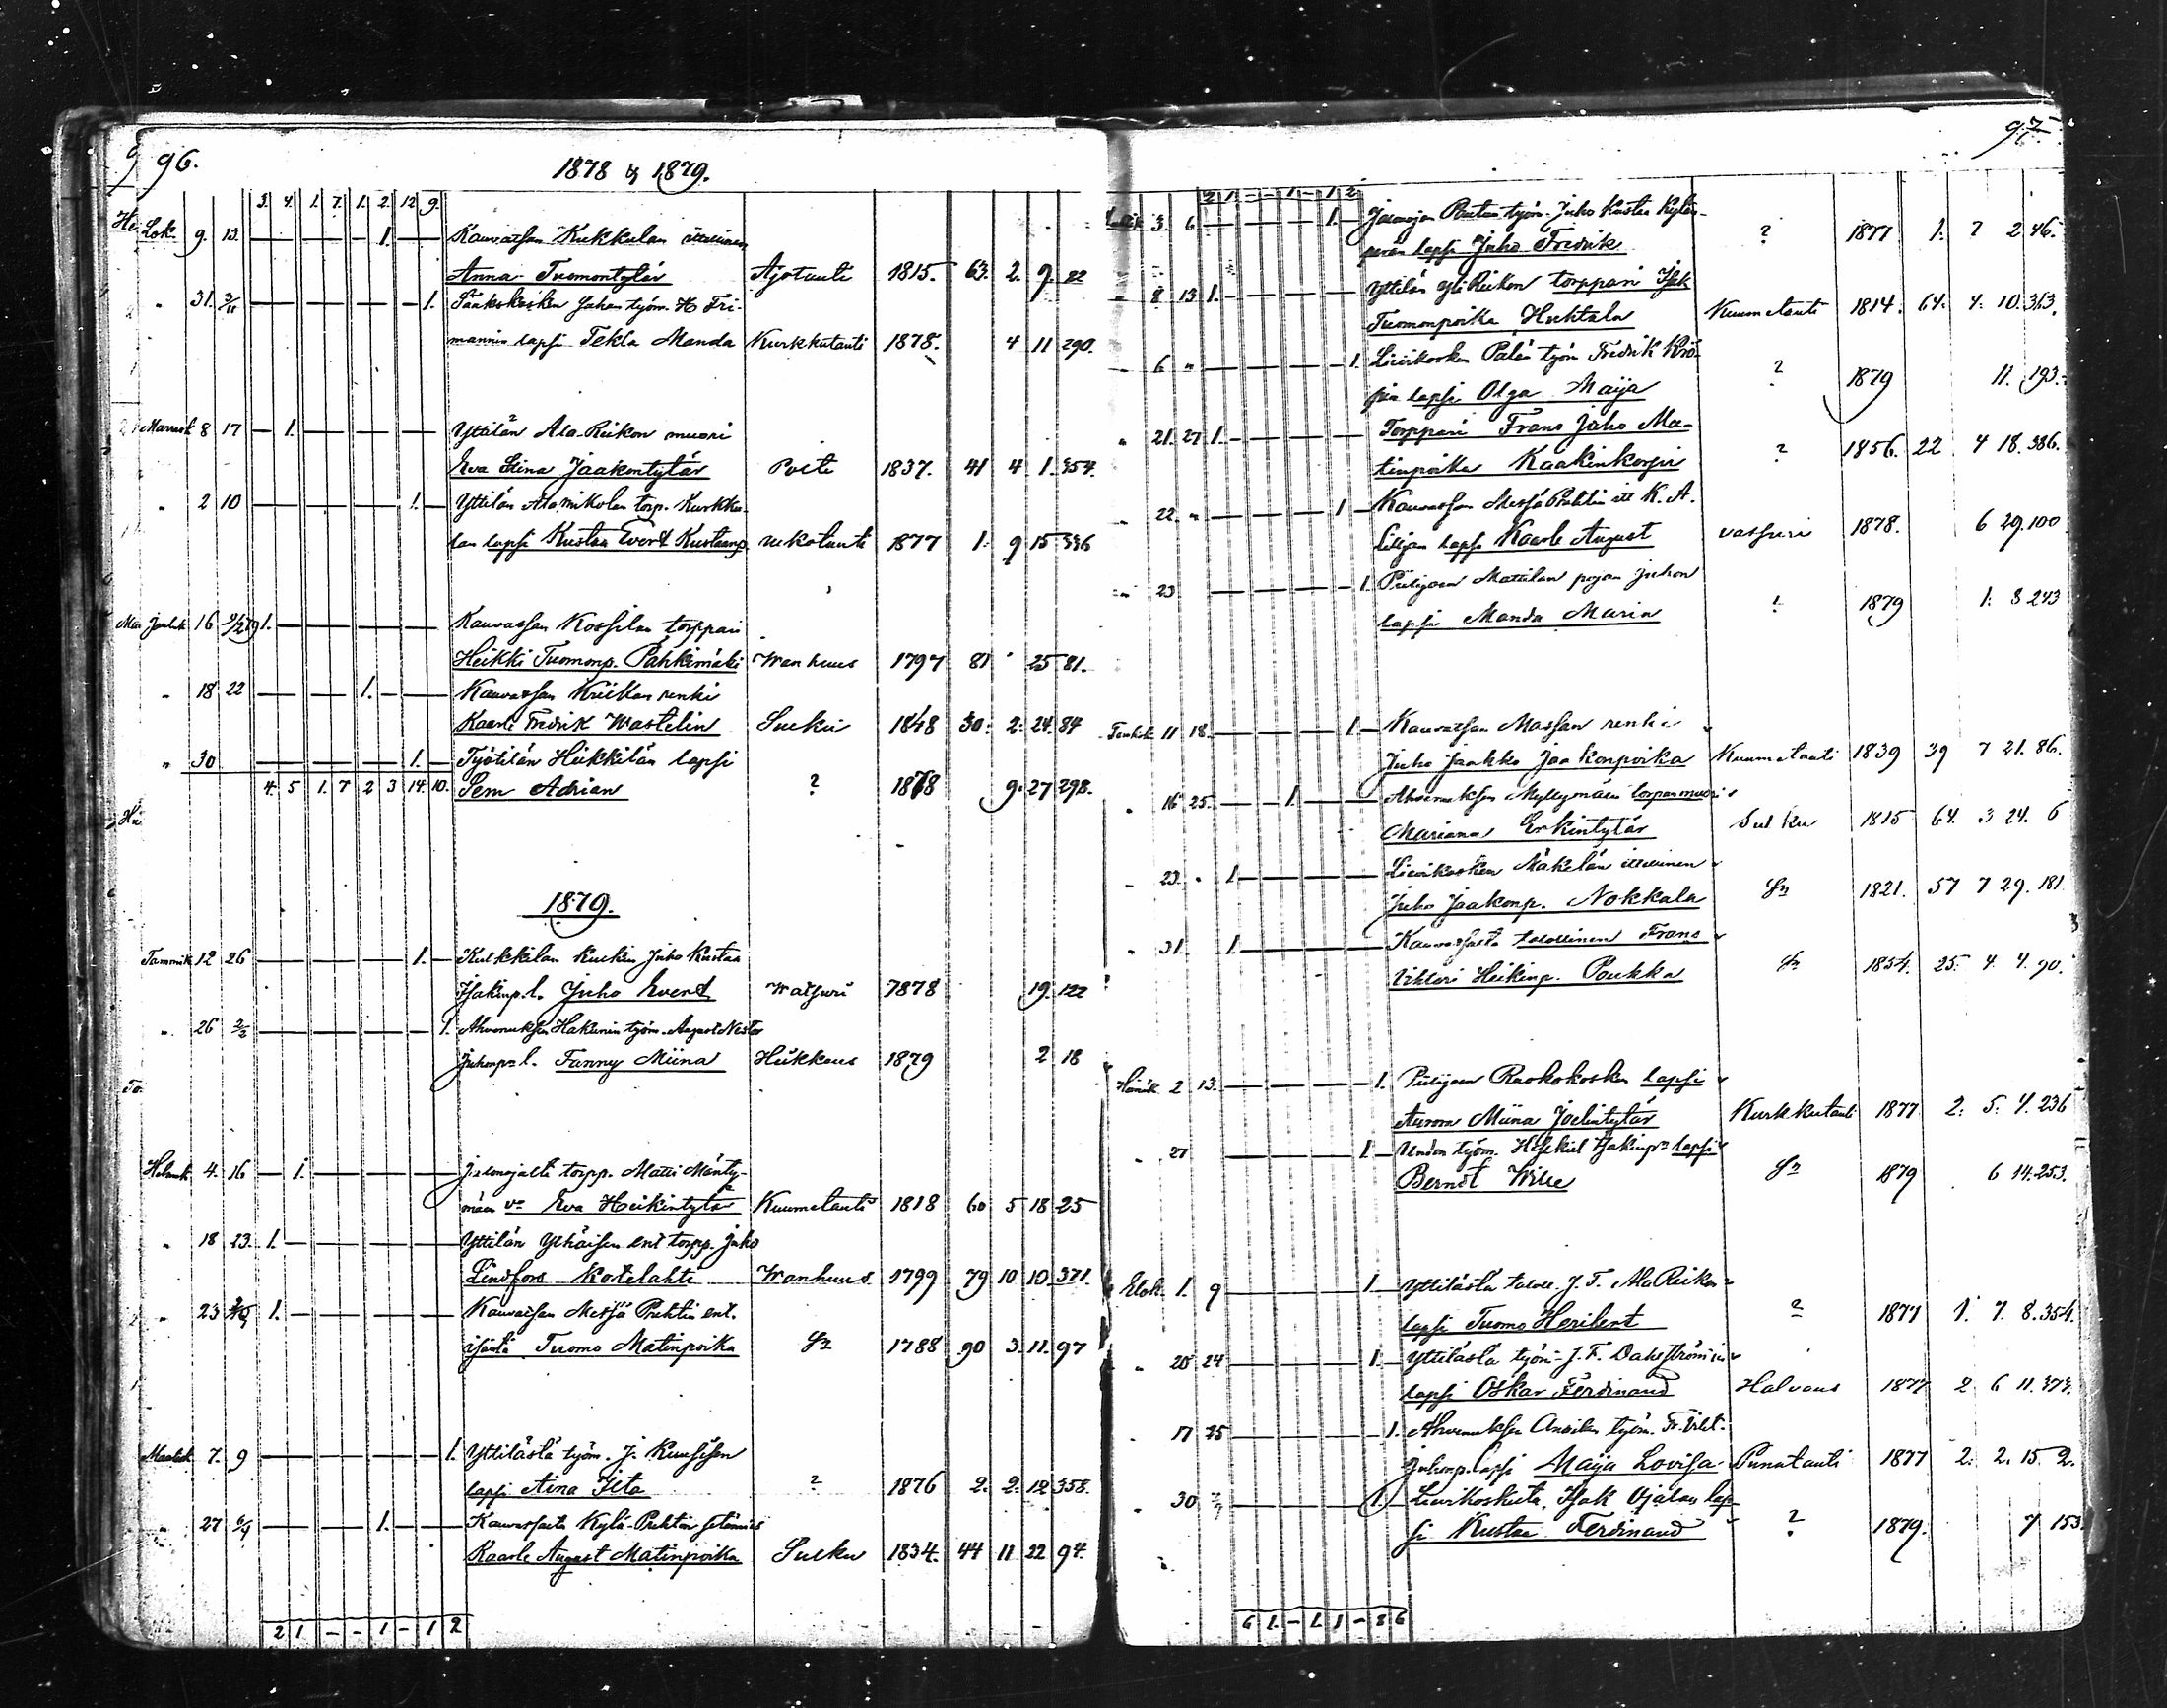 96.
1878 & 1879.
3. 4. 1. 7. 1. 2. 12 9.
Lok. 9. 13. 1. Kauvatsan Kukkulan itsellinen
Anna Tuomontytär Ajotauti 1815. 63. 2. 9. 22
" 31. 3/11 1. Sääkskosken Juhan työm. H Fri-
mannin lapsi Tekla Manda Kurkkutauti 1878. 4 11 290.
Marrask 8 17 1. Yttilän Ala-Riikon muori
Eva Stina Jaakontytär Poltti 1837. 41 4 1. 354.
" 2 10 1. Yttilän Ala Mikolan torp. Kurkku-
lan lapsi Kustaa Evert Kustaanp. 1877 1. 9 15 336
Joulak 16 1. Kauvatsan Kossilan torppari
Heikki Tuomonp. Pähkimäki Wanhuus 1797 81 25 81.
" 18 22 1. Kauvatsan Kriikan renki
Kaarle Fredrik Wastelin Sukui 1848 30. 2. 24. 84
" 30 1. Työtilän Hiikkilän lapsi
4. 5 1. 7 2 3 14. 10. Sem Adrian ? 1878 9. 27 298.
1879.
Tammik 12 26 1. Kulkkilan Juho Kustaa
Isakinp. l. Juho Evert Watsuri 1878 19. 122
" 26 2/2 1. Ahvenuksen Hakunin työm. August Nestor
Juhonp. l. Fanny Miina Hiikkaus 1879 2 18
Helmik 4. 16 1. Jalonojalta torpp. Matti Mänty-
mäen v. Eva Heikintytär Kuumetauti 1818 60 5 18 25
" 18 23. 1. Yttilän Ylhäisen ent torpp. Juho
Lindfors Kortelahti Wanhuus. 1799 79 10 10. 371.
" 23 1. Kauvatsan Metsä Prehtin ent.
isäntä Tuomo Matinpoika Sn 1788 90 3. 11. 97
Maalisk 7. 9 1. Yttilästä työm. J. Kuusisen
lapsi Aina Ita ? 1876 2. 2. 12 358.
" 27 6/4 1. Kauvatsalta Kylä-Prehtin
Kaarle August Matinpoika Sulku 1834. 44 11 22 94.
2 1 - - 1 - 1 2
97.
2 1 - - 1 - 1 2
3 6 1. Jalonojan työm. Juho Kustaa Kylän-
perän lapsi Juho Fredrik ? 1877 1. 7 2 46.
" 8 13 1. Yttilän Yli Riikon torppari Isak
Tuomonpoika Huhtala Kuumetauti 1814. 64. 4. 10. 363.
6 " 1. Lievikosken Palan työm Fredrik
lapsi Olga Maija ? 1879 11. 193.
" 21. 27 1. Torppari Frans Juho Ma-
tinpoika Kaakinkorpi ? 1856. 22 4 18. 386.
" 22. " 1 Kauvatsan Metsä Prehtin itt K. A.
Liljan lapsi Kaarle August vatsuri 1878. 6 29. 100
" 23 1. Piilijoen Mattilan pojan Juhon
lapsi Manda Maria ? 1879 1. 3 243
Toukok 11 18. 1 Kauvatsan Massan renki
Juho Jaakko Jaakonpoika Kuumetauti 1839 39 7 21. 86.
" 16 25. 1. Ahvenuksen Myllymäen torpanmuori
Mariana Erkintytär Sulku 1815 64. 3 24. 6
" 23. " 1 Lievikosken Mäkelän itsellinen
Juho Jaakonp. Nokkala Sn 1821. 57 7 29. 181.
" 31. 1. Kauvatsalta talollinen Frans
Vihtori Heikinp. Poukka Sn 1854. 25. 4 4. 90.
Heinäk 2 13. 1. Piilijoen Raokokosken lapsi
Aurora Miina Joelintytär Kurkkutauti 1877 2. 5. 4. 236
" 27 1 työm. Heskiel Isakinp. lapsi
Berndt Wille Sn 1879 6 14. 253.
Elok. 1. 9 1 Yttilästä taloll. J. F. Ala Riikon
lapsi Tuomo Heribert ? 1877 1. 7. 8. 354.
" 20 24 1. Yttilästä työm. J. F. Dahlströmin
lapsi Oskar Ferdinand Halvaus 1877 2 6 11. 373.
" 17 25 1. Ahvenuksen Anttilan työm. Fr. Vilt.
Juhonp. lapsi Maija Lovisa Punatauti 1877 2. 2. 15. 2.
" 30 1. Lievikoskelta, Isak Ojalan lap-
si Kustaa Ferdinand ? 1879. 7 153
6 1. - 1. 1 - 8 6